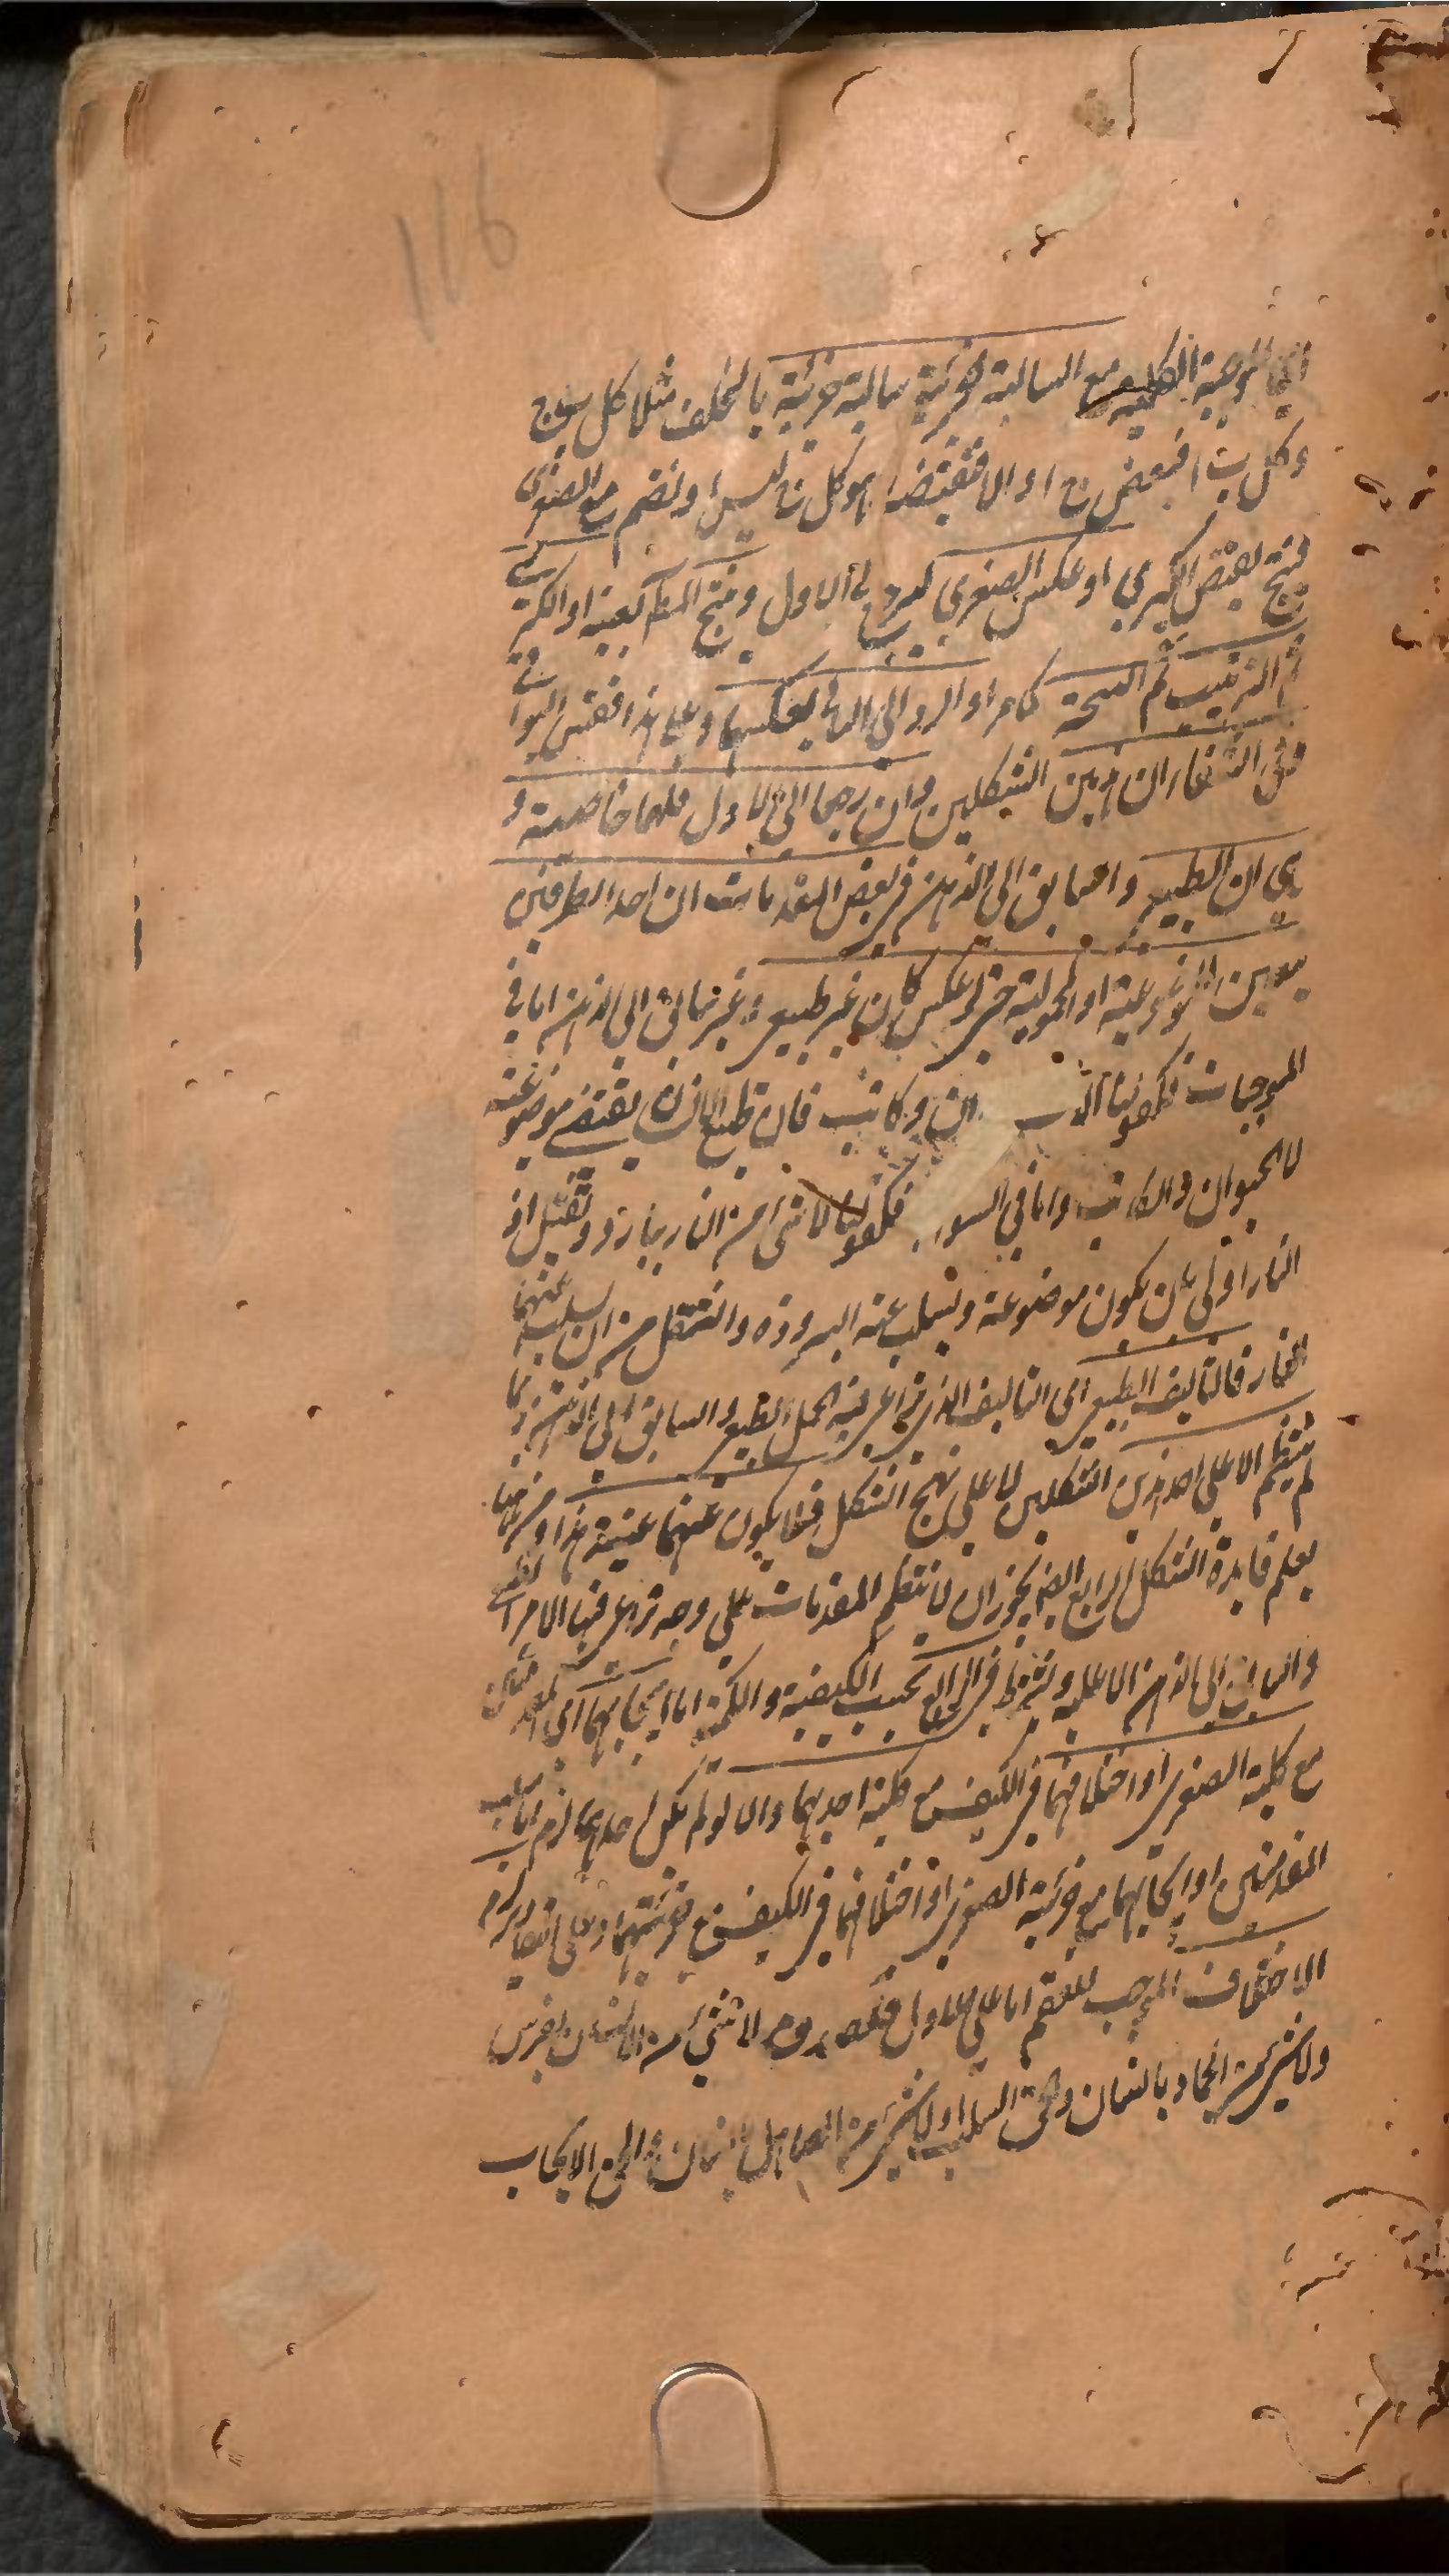 116
اى الموجبة الكلية مع السالبة الجزئية سالبة جزئية بالخلف مثلا كل ب ج
وكل ب ا فبعض ج ا والا فنقيضه هو كل ج ليس ا ونضم مع الصغرى
فينتج نقيض الكبرى او عكس الصغرى ليرجع الى الاول وينتج المط بعينه او الكبرى
ثم الترتيب ثم النتيجة كما مر او الرد الى الثانى بعكسهما وعلى هذا فقس البواقى
وفى الشفاء ان هذين الشكلين وان رجعا الى الاول فلهما خاصية و
هى ان الطبيعى والسابق الى الذهن فى بعض المقدمات ان احد الطرفين
يتعين للموضوعية او المحمولية حتى لو عكس كان غير طبيعى وغير سابق الى الذهن اما فى
الموجبات فكقولنا الانسان كاتب فان طبع الانسان يقتضى موضوعيته
لا الحيوان والكاتب واما فى السوا فكقولنا لا شئ من النار ببارد وثقيل اذ
النار اولى بان يكون موضوعة ويسلب عنه البرودة والثقل من ان يسلب عنهما
النار فالتأليف الطبيعى اى التأليف الذى يراعى فيه الحمل الطبيعى والسابق الى الذهن ربما
لم ينتظم الا على احد هذين الشكلين لا على نهج الشكل فلا يكون عنهما غنية هذا ومن هنا
يعلم فايدة الشكل الرابع ايضا يجوز ان لا تنتظم المقدمات على وجه يراعى فيها الامر الطبيعى
والسابق الى الذهن الا عليه ويشترط فى الرابع بحسب الكيفية والكمية اما ايجابهما اى المقدمتين
مع كلية الصغرى او اختلافهما فى الكيف مع كلية احديهما والا لو لم يكن احدهما لزم اما سلب
المقدمتين او ايجابهما مع جزئية الصغرى او اختلافهما فى الكيف مع جزئيتهما وعلى التقادير لزم
الاختلاف الموجب للعقم اما على الاول فلصدق لا شئ من الانسان بفرس
ولا شئ من الحمار بانسان والحق السلب او لا شئ من الصاهل بانسان والحق الايجاب